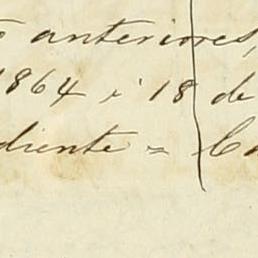 anteriores,
1864 i 18 de
diente = C